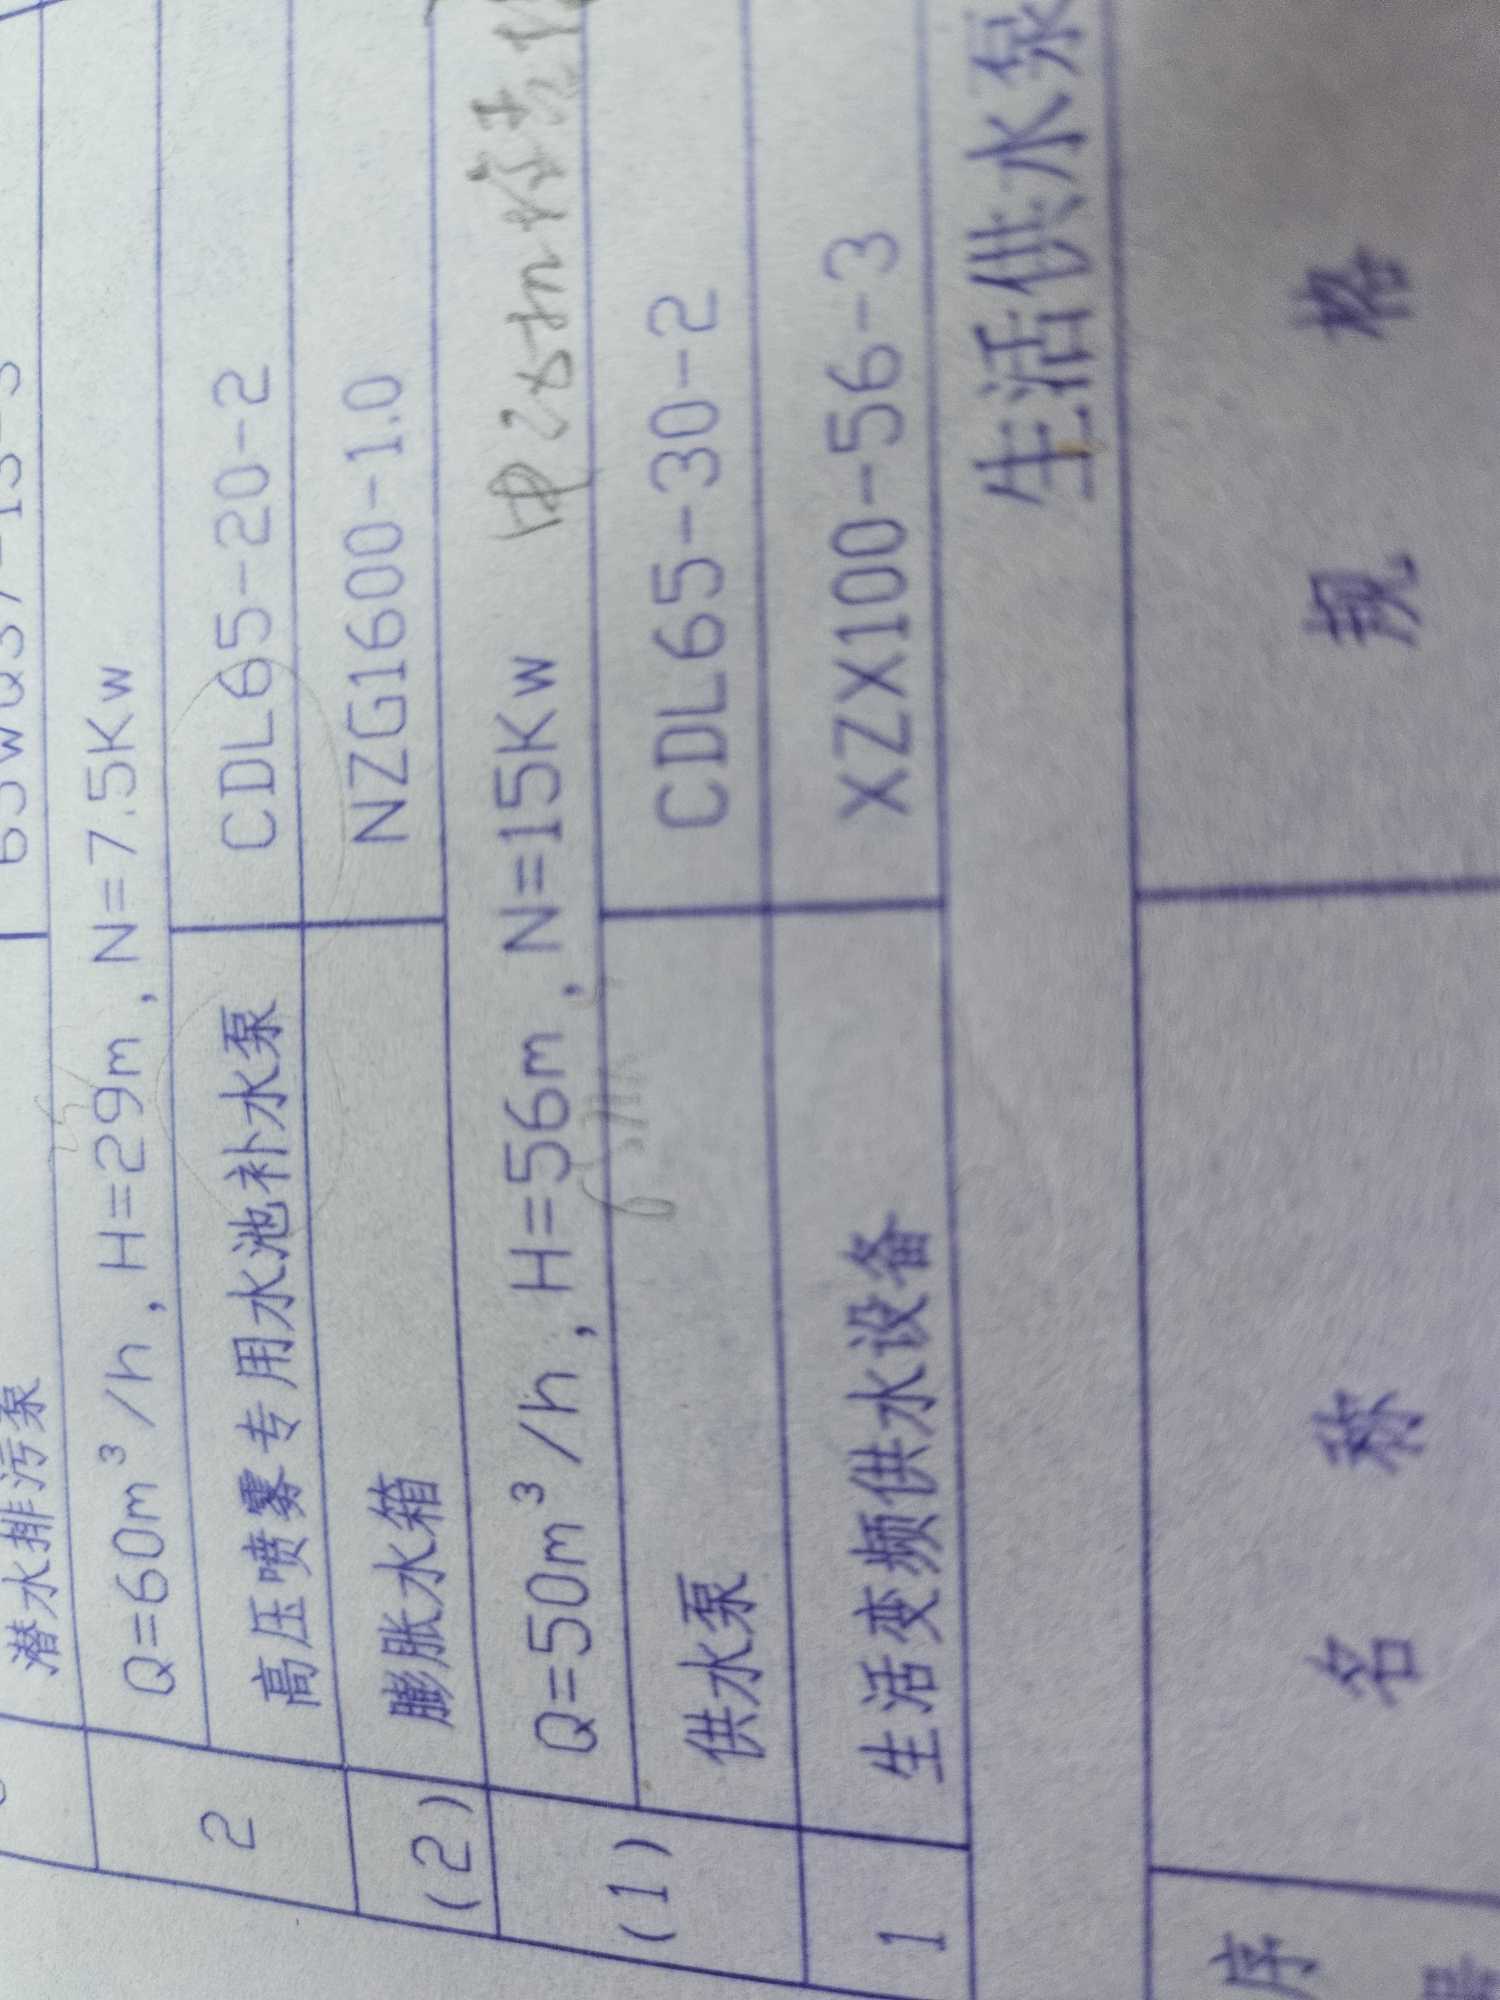 序 名 称 规 格
生活供水泵
1 生活变频供水设备 XZX100-56-3
(1) 供水泵 CDL65-30-2
Q=50m³/h, H=56m, N=15Kw
(2) 膨胀水箱 NZG1600-1.0
2 高压喷雾专用水池补水泵 CDL65-20-2
Q=60m³/h, H=29m, N=7.5Kw
潜水排污泵